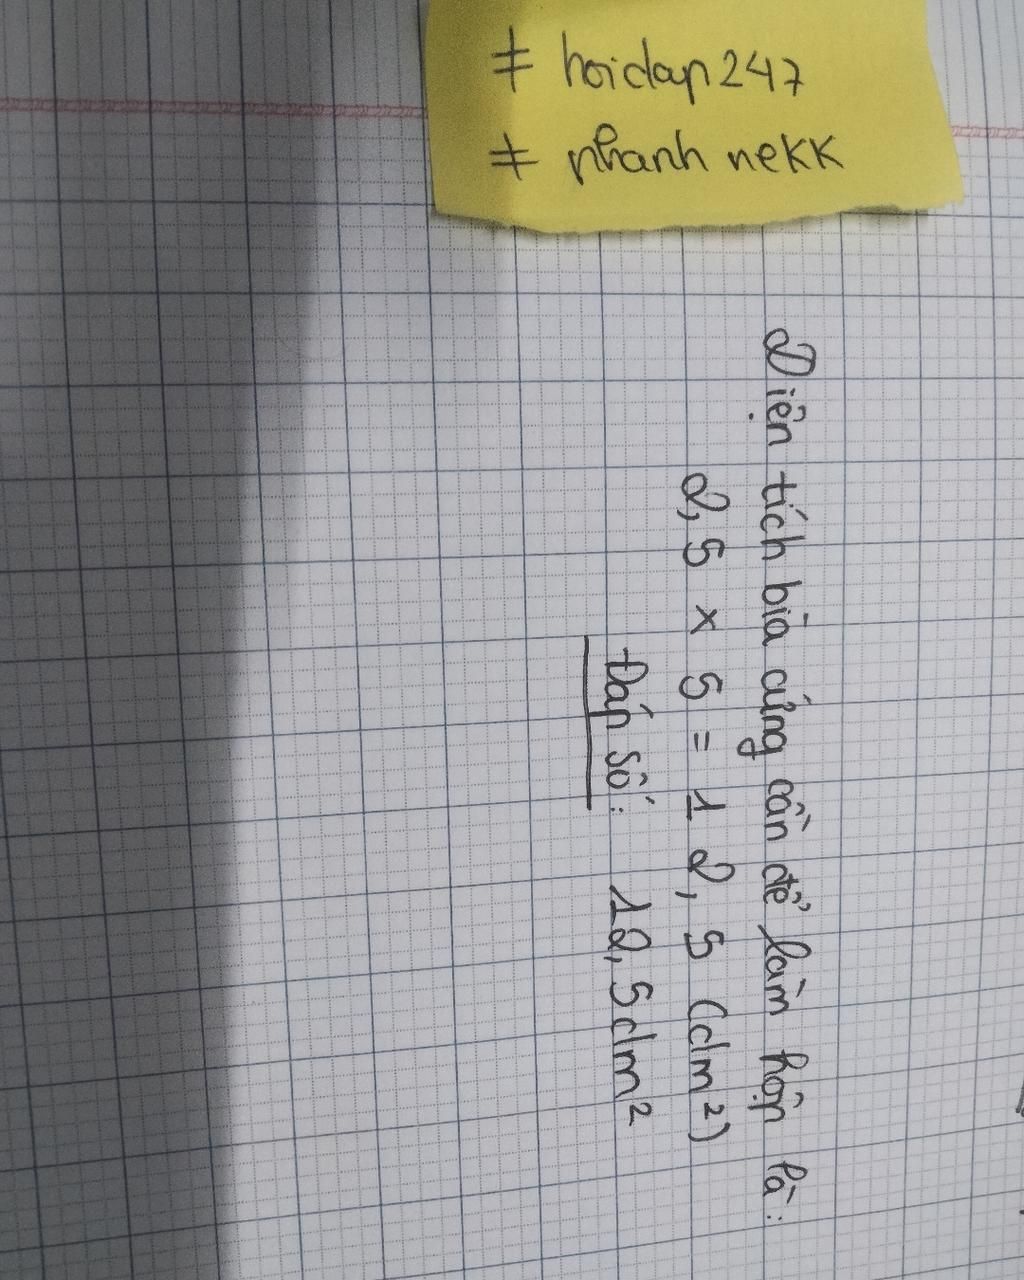 ≠ hoidap247
≠ nhanh nekk
Diện tích bìa cứng cần để làm hộp là:
2,5 × 5 = 12,5 (dm²)
Đáp số: 12,5dm²